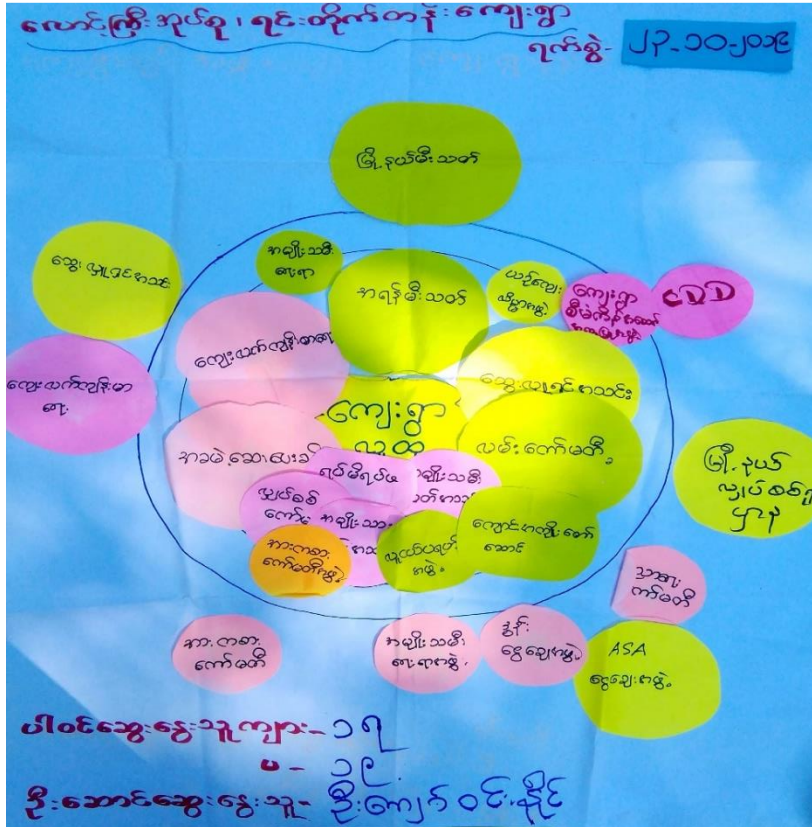 လောင့်ကြီးအုပ်စု၊ ရင်းတိုက်တန်းကျေးရွာ
ရက်စွဲ- ၂၃-၁၀-၂၀၁၉
မြို့နယ်မီးသတ်
သွေးလှူရှင်အသင်း
အမျိုးသမီး
ရေးရာ
အရန်မီးသတ်
ယဉ်ကျေး
လိမ္မာအဖွဲ့
ကျေးရွာ
CDD
ကျေးလက်ကျန်းမာရေး
ကျေးလက်ကျန်းမာ
ရေး
သွေးလှူရှင်အသင်း
ကျေးရွာ
လူထု
လမ်းကော်မတီ
အခမဲ့ဆေးပေးခန်း
ရပ်မိရပ်ဖ
မြို့နယ်
လျှပ်စစ်
ဌာန
လျှပ်စစ်
အမျိုးသား
ကျောင်းအကျိုးတော်
ဆောင်
အားကစား
ကော်မတီအဖွဲ့
လူငယ်ပရဟိတ
အဖွဲ့
သာရေး
ကော်မတီ
အားကစား
ကော်မတီ
အမျိုးသမီး
ရေးရာအဖွဲ့
ငွေချေးအဖွဲ့
ASA
ငွေချေးအဖွဲ့
ပါဝင်ဆွေးနွေးသူကျား- ၁၇
မ- ၁၉
ဦးဆောင်ဆွေးနွေးသူ- ဦးကျော်ဝင်းနိုင်